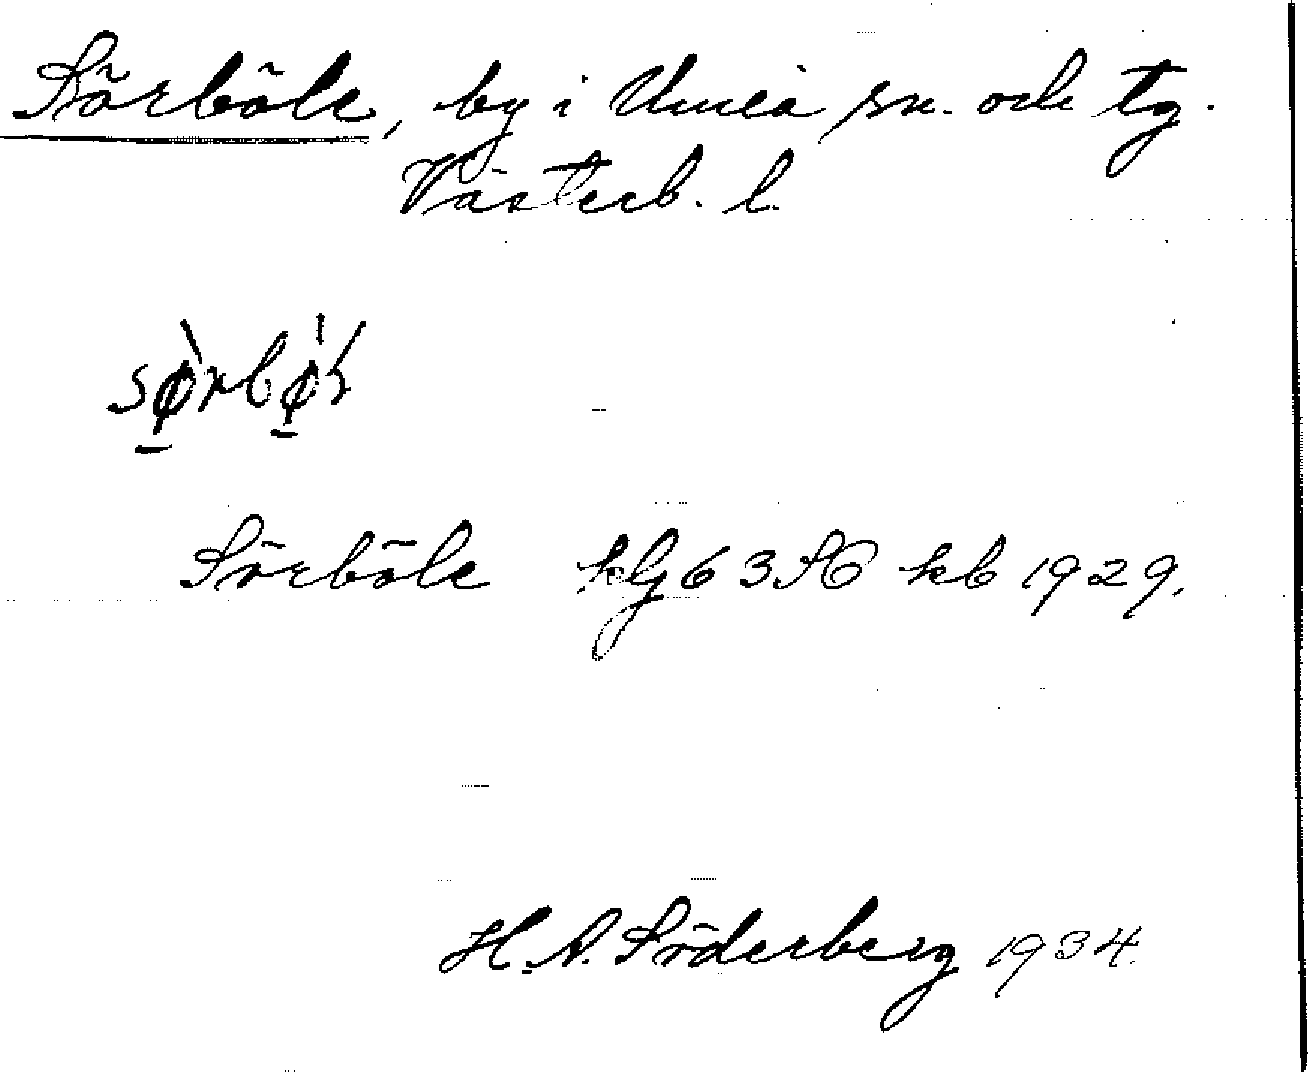 Sörböle, by i Umeå sn. och tg.
Västerb. l.
Sörböle kbl 63 SO kb 1929.
H. A. Söderberg 1934.